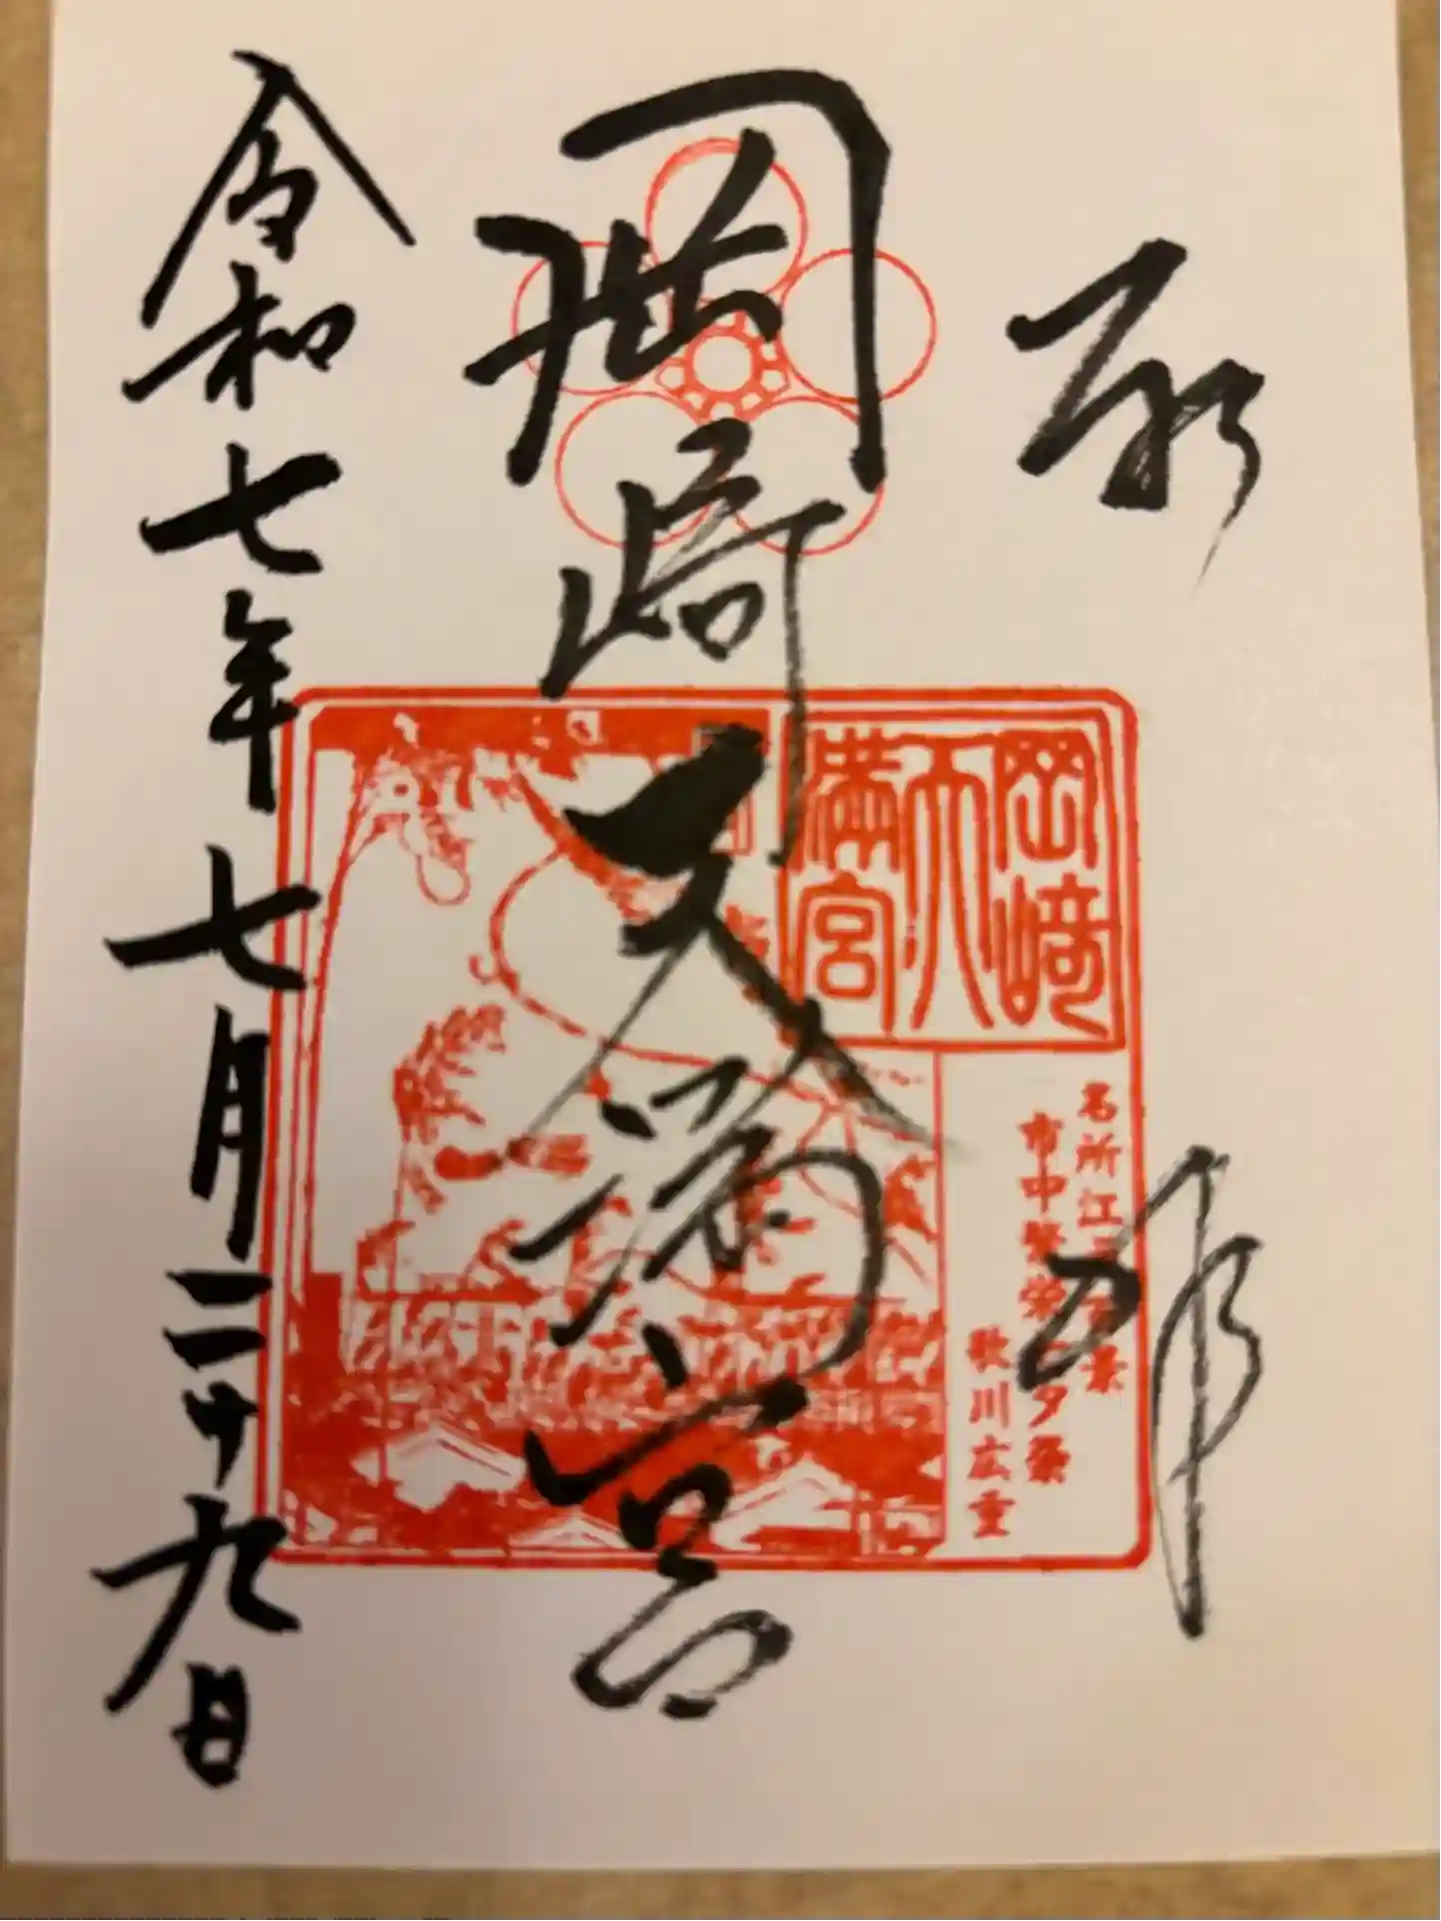 奉拝
岡崎天満宮
岡崎
天
満宮
名所江戸百景
市中繁栄七夕祭
歌川広重
令和七年七月二十九日